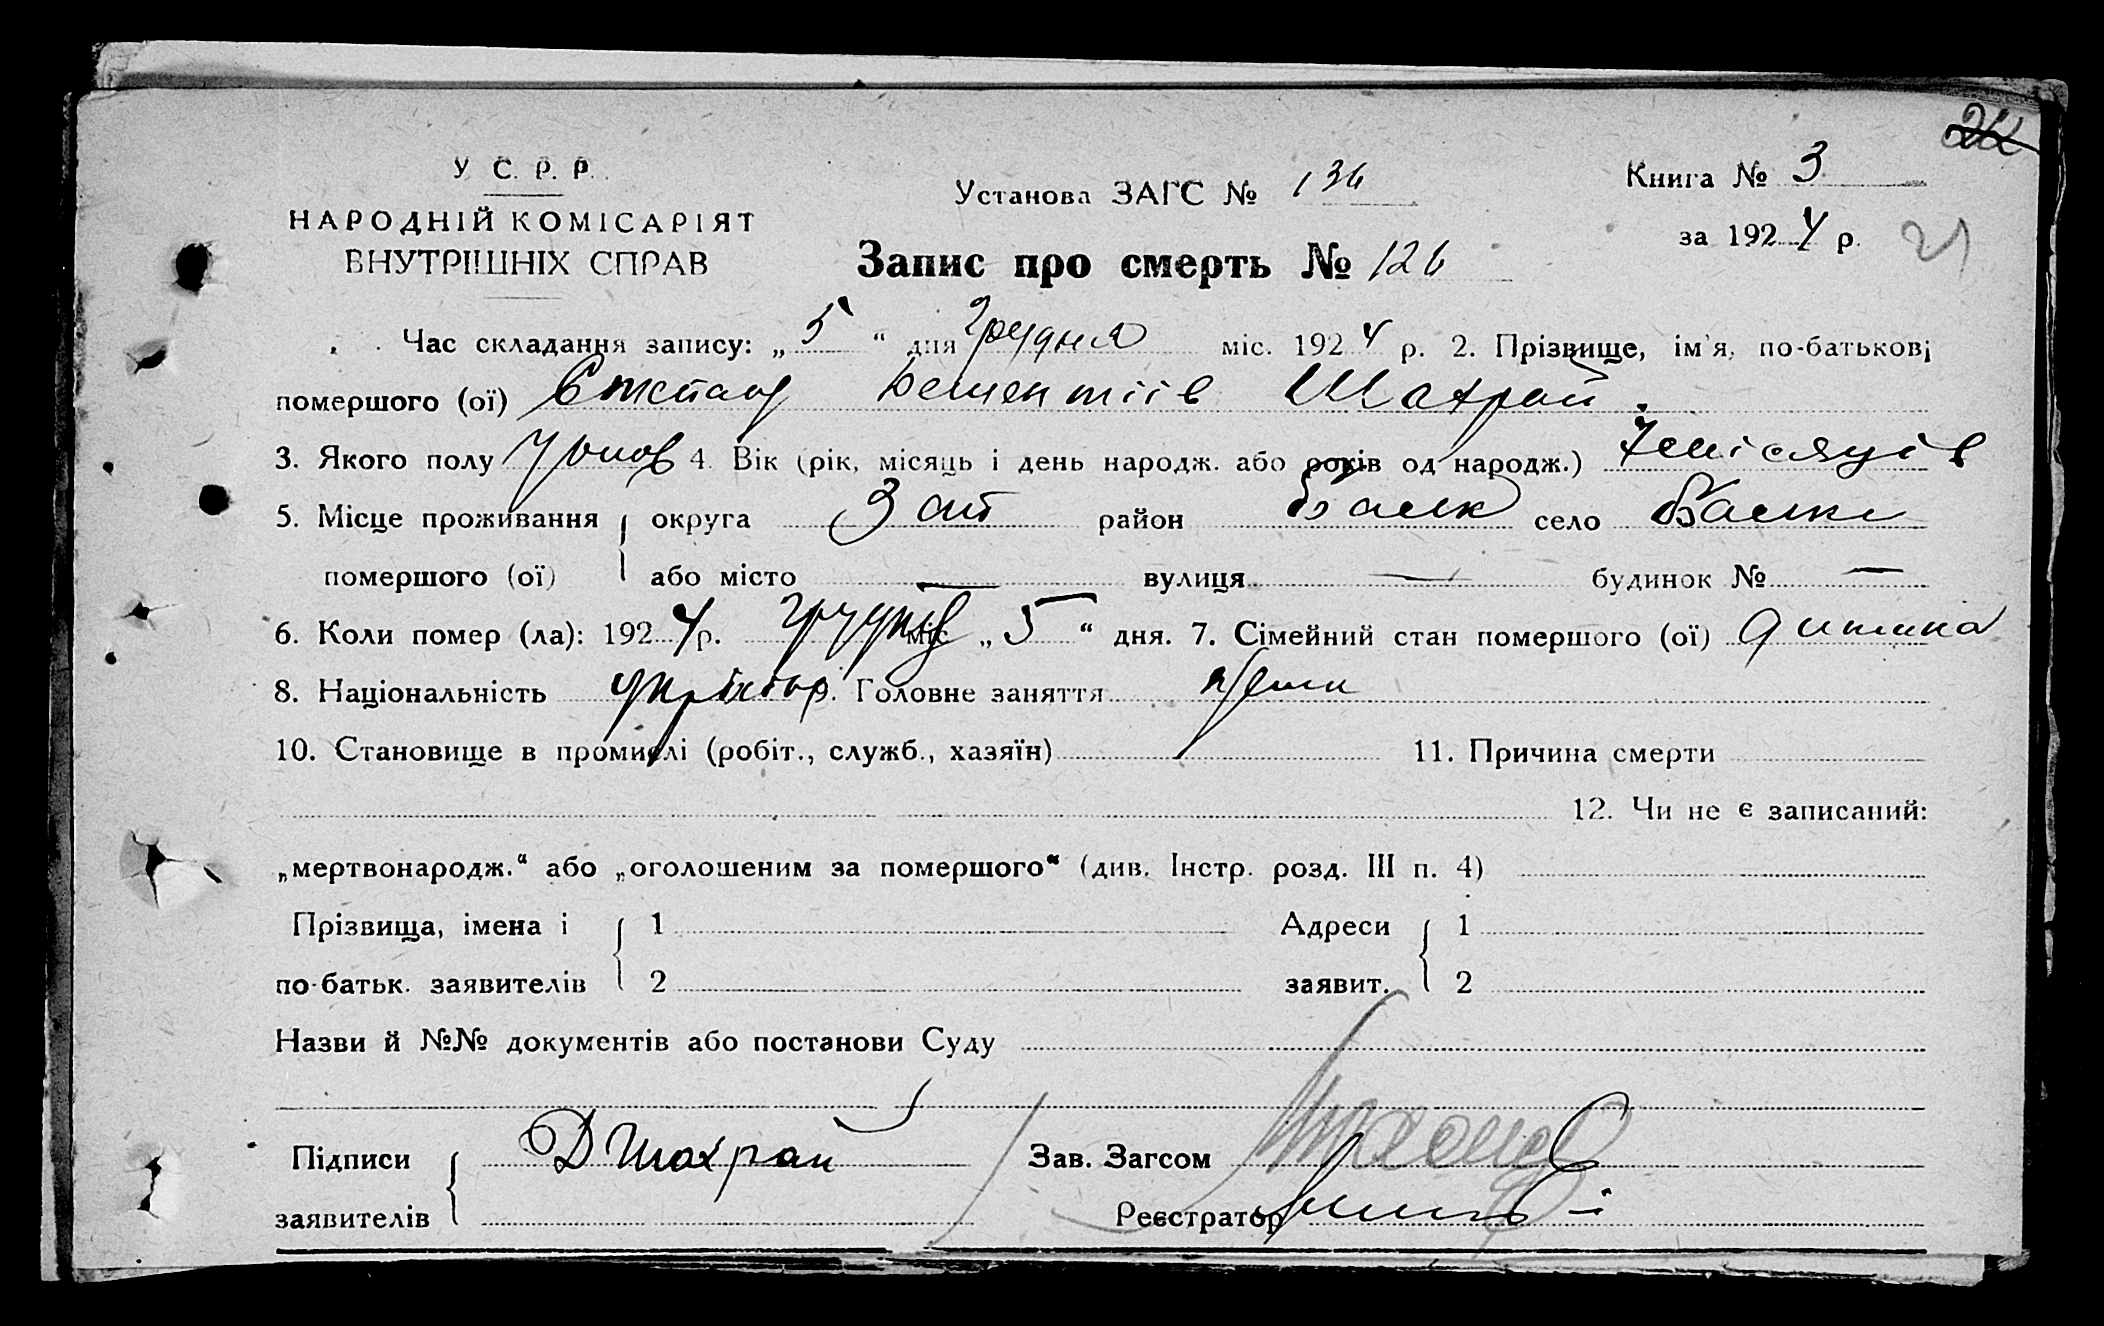 22
У. С. Р. Р.
Установа ЗАГС № 136
Книга № 3
НАРОДНІЙ КОМІСАРІЯТ
ВНУТРІШНІХ СПРАВ
за 1924 р.
21
Запис про смерть № 126
Час складання запису: „5“ дня Грудня міс. 1924 р. 2. Прізвище, ім'я, по-батькові
помершого (ої) Шахрай
3. Якого полу 4. Вік (рік, місяць і день народж. або років од народж.) 7 місяців
5. Місце проживання округа Зап район Балк село Балки
помершого (ої) або місто — вулиця — будинок № —
6. Коли помер (ла): 1924 р. грудня міс „5“ дня. 7. Сімейний стан помершого (ої) дитина
8. Національність Головне заняття
10. Становище в промислі (робіт., служб., хазяїн) 11. Причина смерти
12. Чи не є записаний:
„мертвонародж.“ або „оголошеним за помершого“ (див. Інстр. розд. III п. 4)
Прізвища, імена і 1 Адреси 1
по-батьк. заявителів 2 заявит. 2
Назви й №№ документів або постанови Суду
Підписи Д Шахрай Зав. Загсом
заявителів Реєстратор